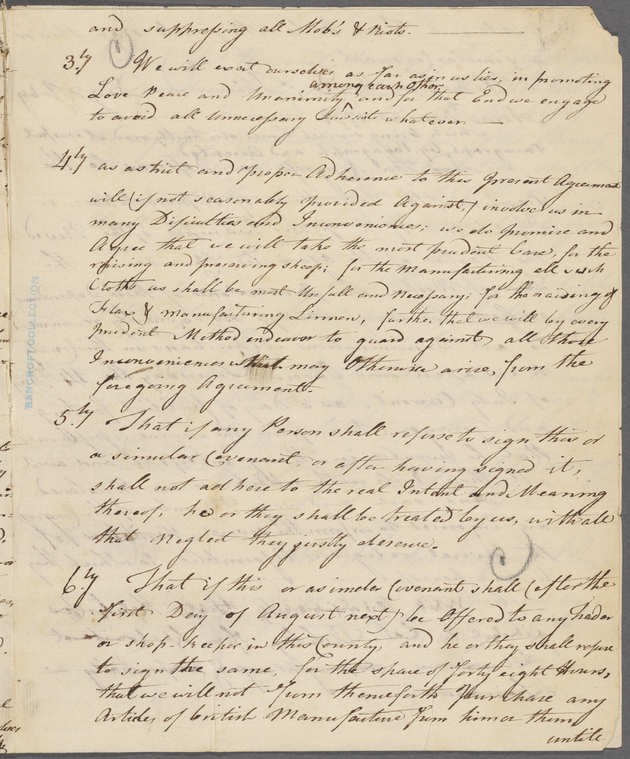 and suppressing all Mob's & Riots.
3.ly We will exert ourselves as far as in us lies, in promoting
among each other
Love Peace and Unanimity and for that End we engage
to avoid all Unnecessary Lawsuits whatever.
4.ly as a strict and proper Adherence to this present Agreement
will (if not seasonably provided Against,) involve us in
many Dificulties and Inconveniences; we do promise and
Agree that we will take the most prudent Care for the
raising and preserving sheep; for the Manufacturing all such
Cloths as shall be most Usefull and Necessary; for the raising of
Flax & manufacturing Linnen, further that we will by every
prudent Method endeavor to guard against all those
Inconveniencies that may Otherwise arise, from the
foregoing Agreement.
5.ly That if any Person shall refuse to sign this or
a simular Covenant or after having signed it,
shall not adhere to the real Intent and Meaning
thereof, he or they shall be treated by us, with all
that Neglect they justly deserve.
6.ly That if this or a simeler Covenant shall (after the
first Day of August next) be Offered to any trader
or shop-keeper in this County, and he or they shall refuse
to sign the same, for the space of forty eight Hours,
that we will not from thenceforth Purchase any
Articles of british Manufacture from him or them
untile
BANCROFT COLLECTION